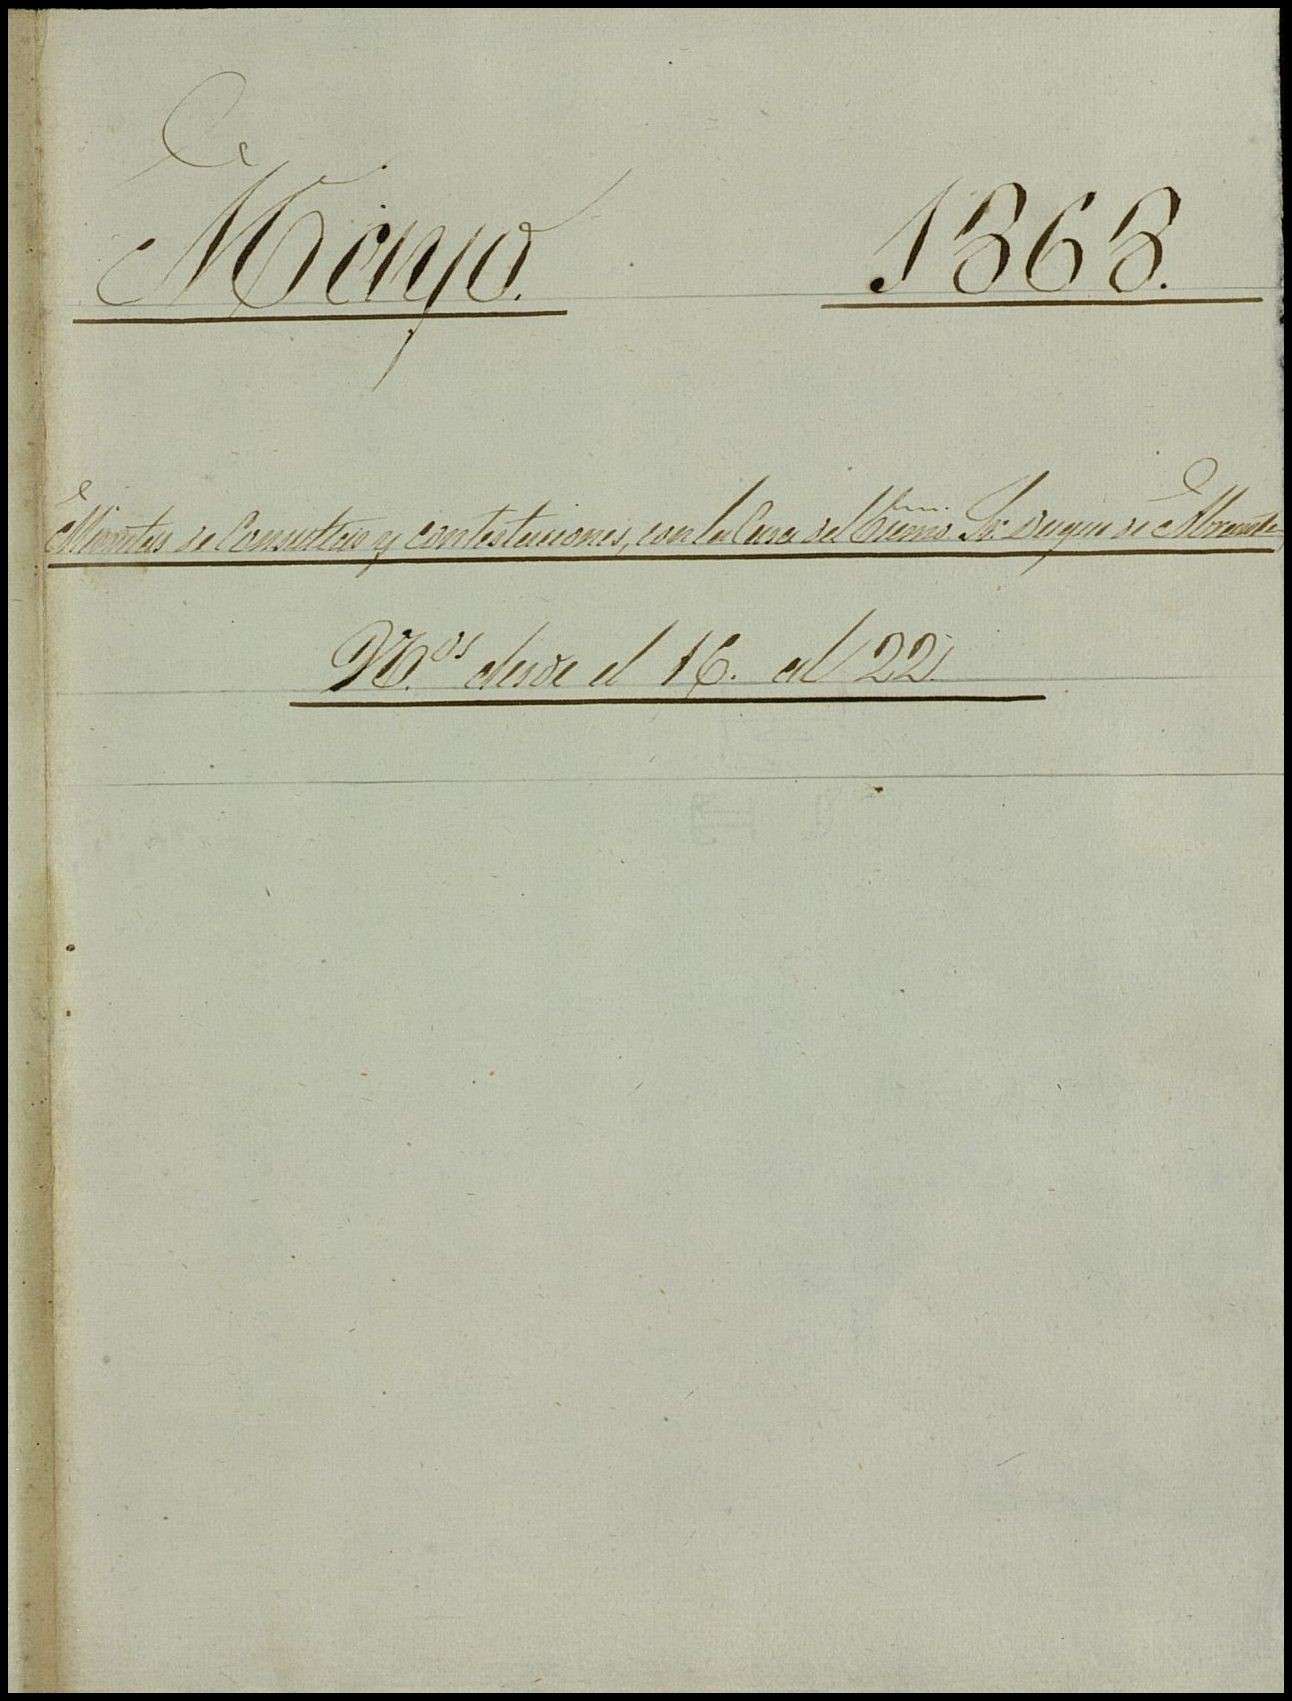 Mayo. 1868.
Minutas de Consultas y contestaciones, con la Casa del Excmo. Sr. Duque de Abrantes
N.os desde el 16. al 22.